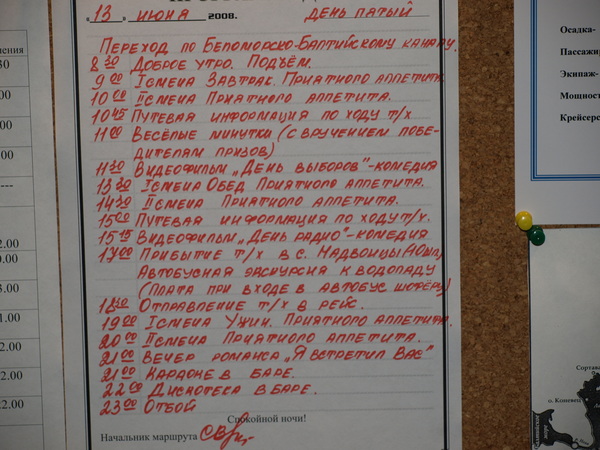 13 ИЮНЯ 2008. ДЕНЬ ПЯТЫЙ
ПЕРЕХОД ПО БЕЛОМОРСКО-БАЛТИЙСКОМУ КАНАЛУ.
8 30 ДОБРОЕ УТРО. ПОДЪЁМ.
9 00 I СМЕНА ЗАВТРАК. ПРИЯТНОГО АППЕТИТА.
10 00 II СМЕНА ПРИЯТНОГО АППЕТИТА.
10 45 ПУТЕВАЯ ИНФОРМАЦИЯ ПО ХОДУ Т/Х
11 00 ВЕСЁЛЫЕ МИНУТКИ (С ВРУЧЕНИЕМ ПОБЕ-
ДИТЕЛЯМ ПРИЗОВ)
11 30 ВИДЕОФИЛЬМ „ДЕНЬ ВЫБОРОВ"-КОМЕДИЯ
13 30 I СМЕНА ОБЕД ПРИЯТНОГО АППЕТИТА.
14 30 II СМЕНА ПРИЯТНОГО АППЕТИТА.
15 00 ПУТЕВАЯ ИНФОРМАЦИЯ ПО ХОДУ Т/Х.
15 15 ВИДЕОФИЛЬМ „ДЕНЬ РАДИО"-КОМЕДИЯ
17 00 ПРИБЫТИЕ Т/Х В С. НАДВОИЦЫ (10 ШЛ)
АВТОБУСНАЯ ЭКСКУРСИЯ К ВОДОПАДУ
(ПЛАТА ПРИ ВХОДЕ В АВТОБУС ШОФЁРУ)
18 30 ОТПРАВЛЕНИЕ Т/Х В РЕЙС.
19 00 I СМЕНА УЖИН. ПРИЯТНОГО АППЕТИТА.
20 00 II СМЕНА ПРИЯТНОГО АППЕТИТА.
21 00 ВЕЧЕР РОМАНСА „Я ВСТРЕТИЛ ВАС"
21 00 КАРАОКЕ В БАРЕ.
22 00 ДИСКОТЕКА В БАРЕ.
23 00 ОТБОЙ
Спокойной ночи!
Начальник маршрута
Осадка-
Пассажир
Экипаж-
Мощност
Крейсерс
Сортава
о. Коневец